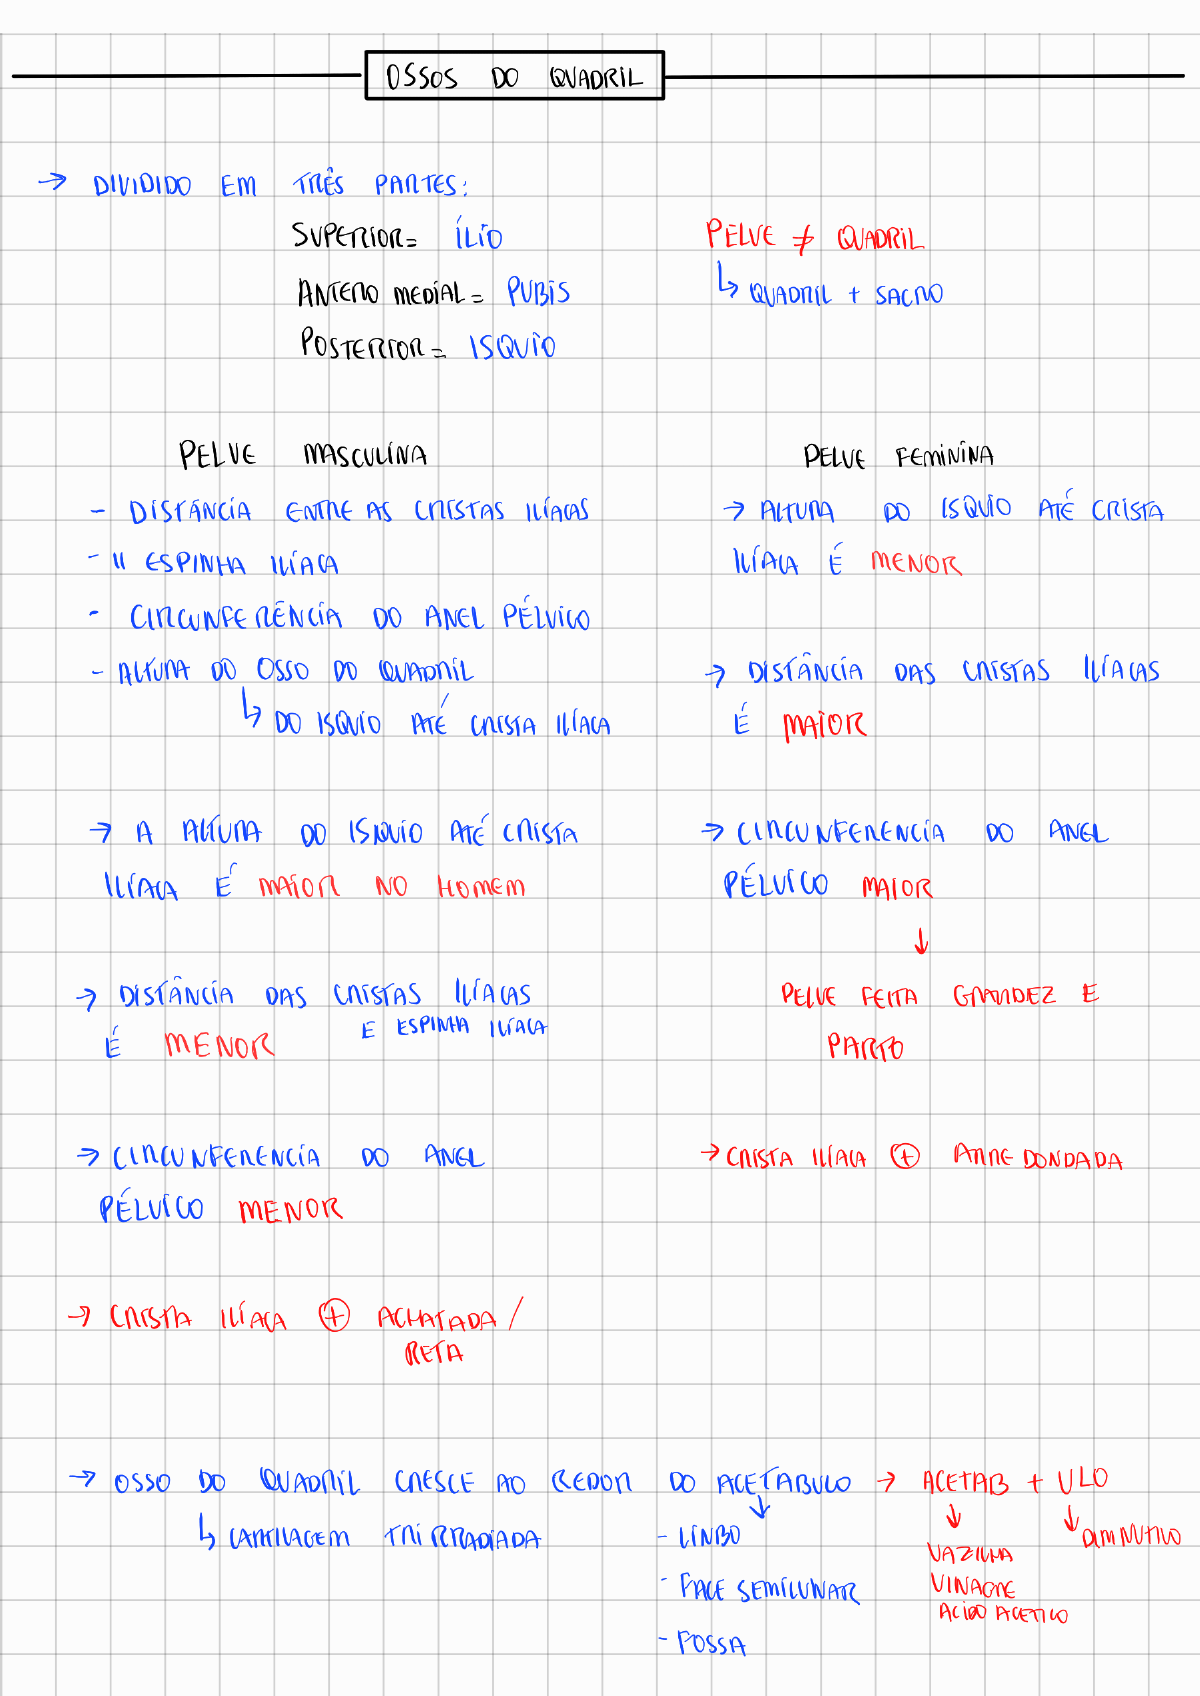 OSSOS DO QUADRIL
→ DIVIDIDO EM TRÊS PARTES:
SUPERIOR = ÍLIO
ANTERO MEDIAL = PUBIS
POSTERIOR = ISQUIO
PELVE ≠ QUADRIL
↳ QUADRIL + SACRO
PELVE MASCULINA
- DISTÂNCIA ENTRE AS CRISTAS ILÍACAS
- " ESPINHA ILÍACA
- CIRCUNFERÊNCIA DO ANEL PÉLVICO
- ALTURA DO OSSO DO QUADRIL
↳ DO ISQUIO ATÉ CRISTA ILÍACA
→ A ALTURA DO ISQUIO ATÉ CRISTA
ILÍACA É MAIOR NO HOMEM
→ DISTÂNCIA DAS CRISTAS ILÍACAS
E ESPINHA ILÍACA
É MENOR
→ CIRCUNFERENCIA DO ANEL
PÉLVICO MENOR
→ CRISTA ILÍACA ⊕ ACHATADA /
RETA
PELVE FEMININA
→ ALTURA DO ISQUIO ATÉ CRISTA
ILÍACA É MENOR
→ DISTÂNCIA DAS CRISTAS ILÍACAS
É MAIOR
→ CIRCUNFERENCIA DO ANEL
PÉLVICO MAIOR
↓
PELVE FEITA GRANDEZ E
PARTO
→ CRISTA ILÍACA ⊕ ARREDONDADA
→ OSSO DO QUADRIL CRESCE AO REDOR DO ACETABULO → ACETAB + ULO
↳ CARTILAGEM TRIRRADIADA
↓
- LINBO
- FACE SEMILUNAR
- FOSSA
↓
VAZILHA
VINAGRE
ACIDO ACETICO
↓ DIMINUTIVO